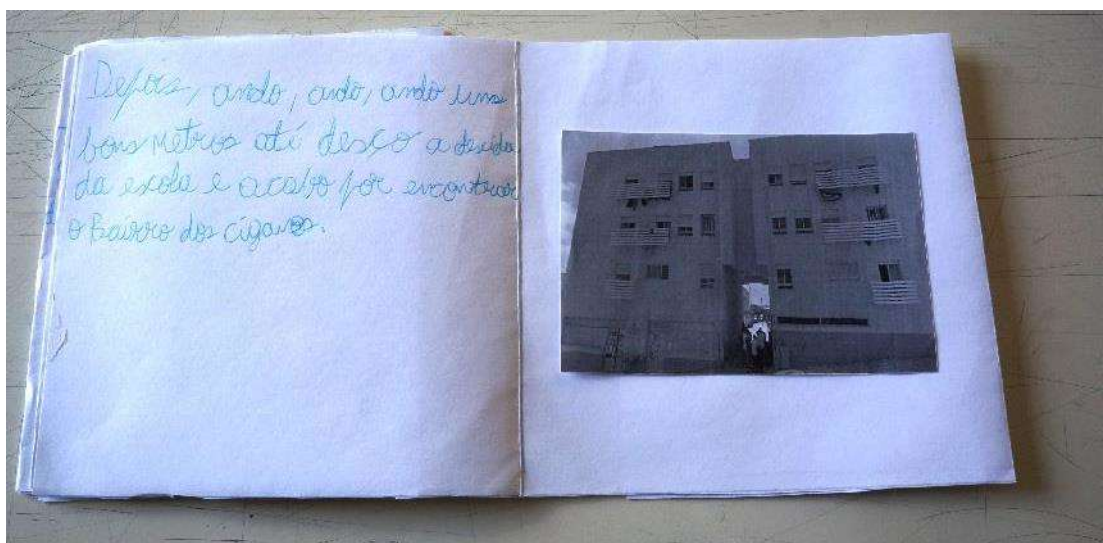 Depois, ando, ando, ando uns
bons metros até desço a descida
da escola e acabo por encontrar
o Bairro dos ciganos.